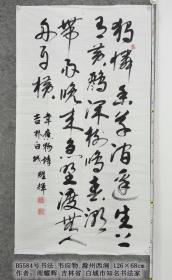 獨憐幽草澗邊生上
有黄鹂深树鳴春潮
帶雨晚来急野渡無人
舟自横
韋應物詩
吉林白城 耀輝
B5584号书法 韦应物 滁州西涧 126×68cm
作者：周耀辉 吉林省 白城市知名书法家